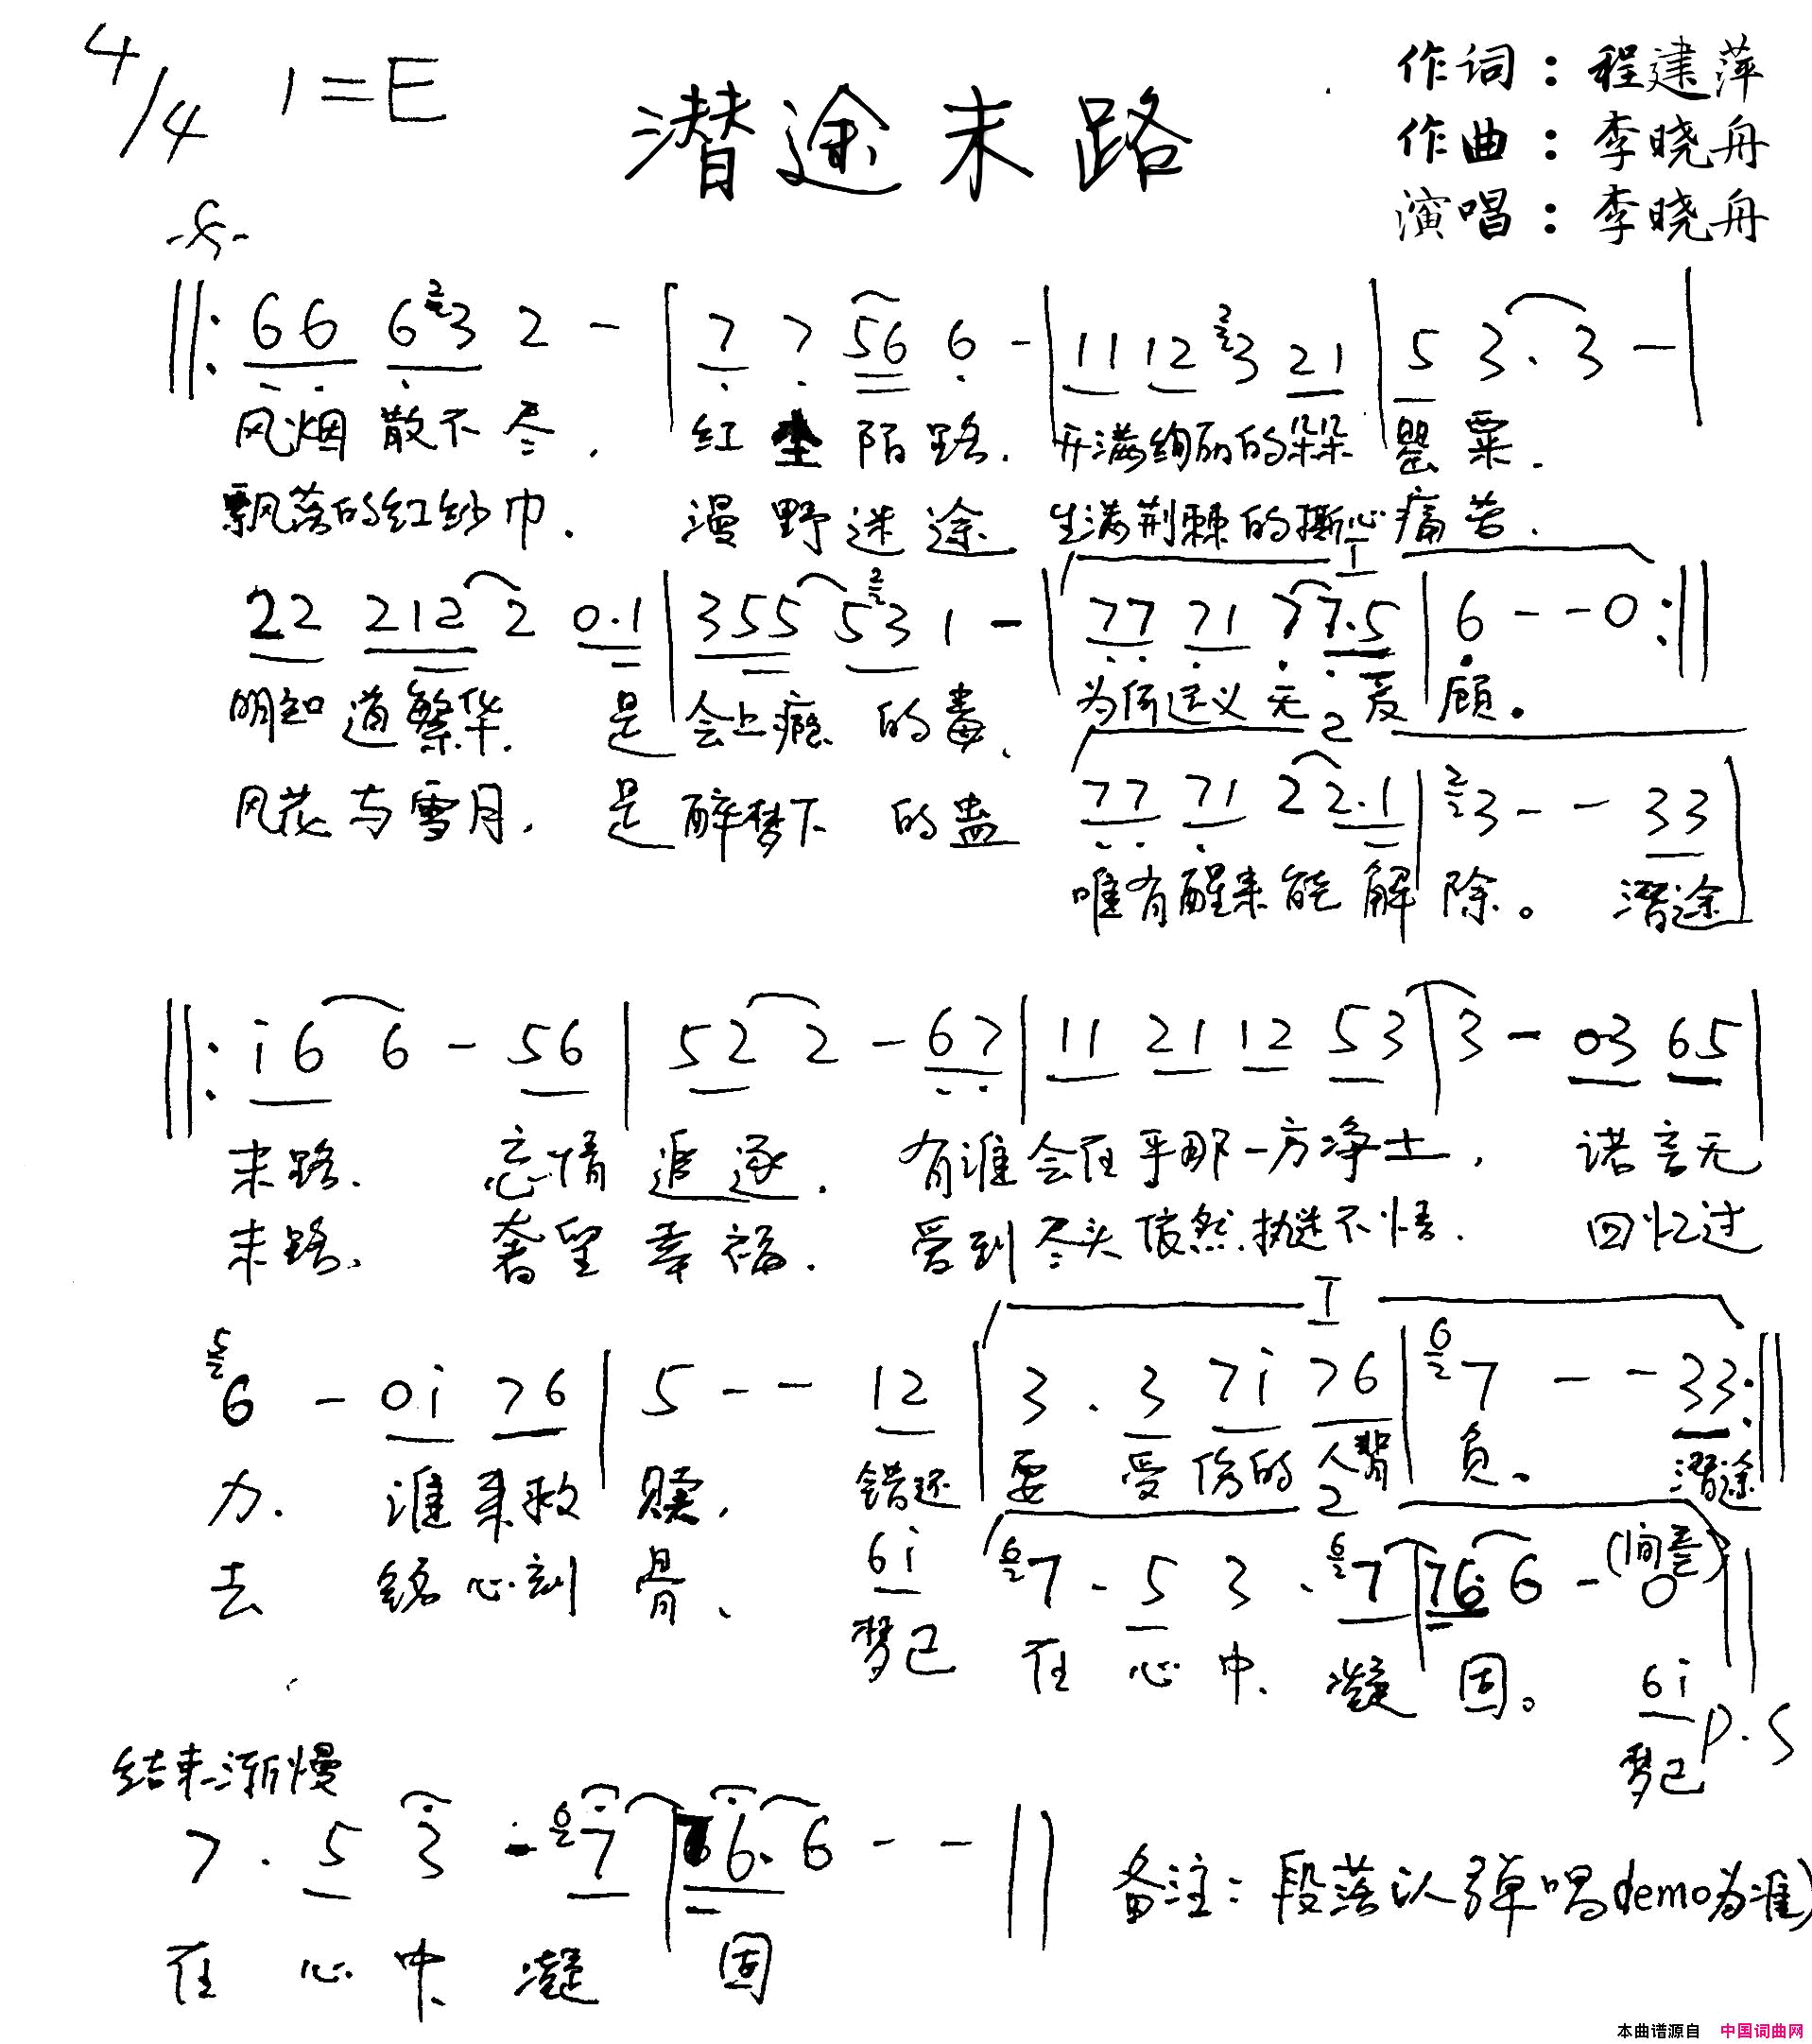 4/4 1=E
潜途末路
作词：程建萍
作曲：李晓舟
演唱：李晓舟
‖: 66 6 2 3 2 - | 7 7 56 6 - | 11 12 2 3 21 | 5 3. 3 - |
风烟散不尽, 红尘陌路. 开满绚丽的朵朵罂粟.
飘落的红纱巾. 漫野迷途 生满荆棘的撕心痛苦.
I
22 212 2 0.1 | 355 5 2 3 1 - | 77 71 7 7.5 | 6 - - 0 :‖
明知道繁华. 是会上瘾的毒、 为何迟义无反顾.
2
77 71 2 2.1 | 2 3 - - 33
风花与雪月, 是醉梦下的蛊
唯有醒来能解除。 潜途
‖: i6 6 - 56 | 52 2 - 67 | 11 21 12 53 | 3 - 03 65 |
末路. 忘情追逐. 有谁会在乎那一方净土, 诺言无
末路、 奢望幸福. 受到尽头依然执迷不悟. 回忆过
I
5 6 - 0i 76 | 5 - - 12 | 3 . 3 7i 76 | 6 7 - - 33 :‖
力. 谁来救赎, 错还要受伤的人背负。 潜途
2
6i 6 7 - 5 3 . 6 7 | 76 6 - 0 (间奏) ‖
去 铭心刻骨、
梦已在心中、凝固。
6i P.S
梦已
结束渐慢
7 . 5 3 - 6 7 | 76. 6 - - ‖
在心中、凝固
备注：段落以弹唱demo为准)
本曲谱源自 中国词曲网